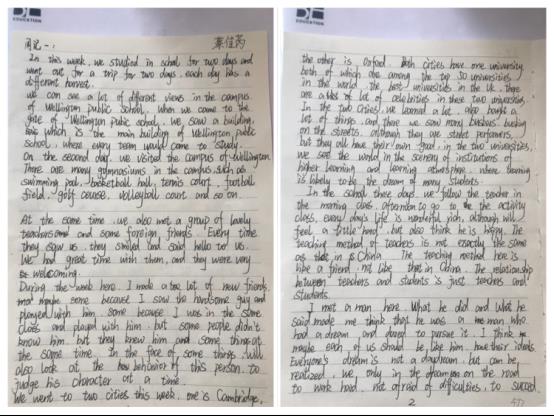 EDUCATION
周记一: 蔡佳芮
In this week, we studied in school for two days and
went out for a trip for two days, each day has a
different harvest.
we can see a lot of different views in the campus
of Wellington Public School. When we come to the
gate of Wellington Public school, we saw a building,
which is the main building of Wellington public
school, where every team would come to study.
On the second day, we visited the campus of Wellington.
There are many gymnasiums in the campus, such as
swimming pool, basketball hall, tennis court, football
field, golf course, volleyball court and so on.
At the same time, we also met a group of lovely
teachers and some foreign friends. Every time
they saw us, they smiled and said hello to us.
We had great time with them, and they were very
welcoming.
During the week here, I made a lot of new friends,
maybe some because I saw the handsome guy and
played with him, some because I was in the same
class and played with him, but some people didn't
know him, but they knew him and some things at
the same time. In the face of some things, will
also look at the behavior of this person, to
judge his character at a time.
We went to two cities this week, one is Cambridge,
the other is Oxford. Both cities have one university
both of which are among the top 50 universities
in the world, the best universities in the UK. There
are a lot of celebrities in these two universities.
In the two cities, we learned a lot, also bought a
lot of things, and there we saw many buskers, busking
on the streets, although they are street performers,
but they all have their own goal, in the two universities,
we see the world in the scenery of institutions of
higher learning and learning atmosphere, where learning
is likely to be the dream of many students.
In the school these days, we follow the teacher in
the morning class, afternoon to go to the activity
class, every day's life is wonderful rich, although will
feel a little hard, but also think he is happy. The
teaching method of teachers is not exactly the same
as that in China. The teaching method here is
like a friend, not like that in China. The relationship
between teachers and students is just teachers and
students.
I met a man here. What he did and what he
said made me think that he was a man who
had a dream and dared to pursue it. I think
maybe each of us should be like him, have their ideals.
Everyone's dream is not a daydream, but can be
realized, we only in the dream on the road
to work hard, not afraid of difficulties, to succeed.
2